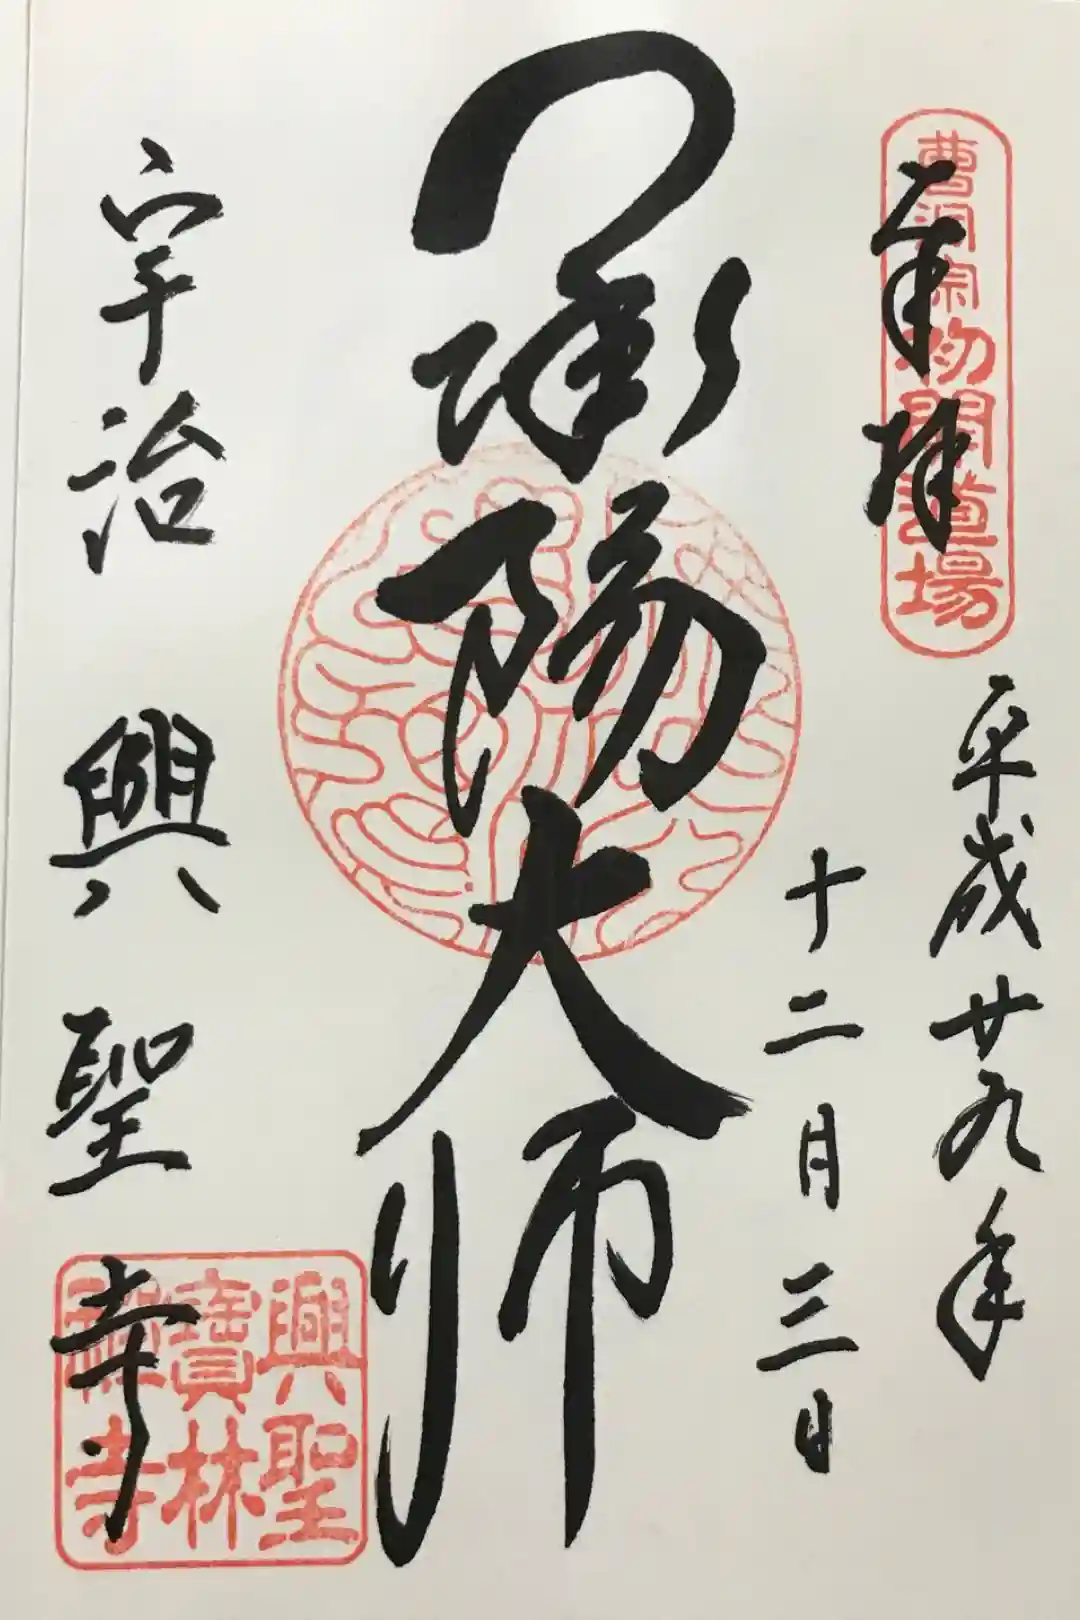 奉拝
曹洞宗初開道場
平成廿九年
十二月三日
承陽大師
宇治 興聖寺
興聖
寳林
禅寺